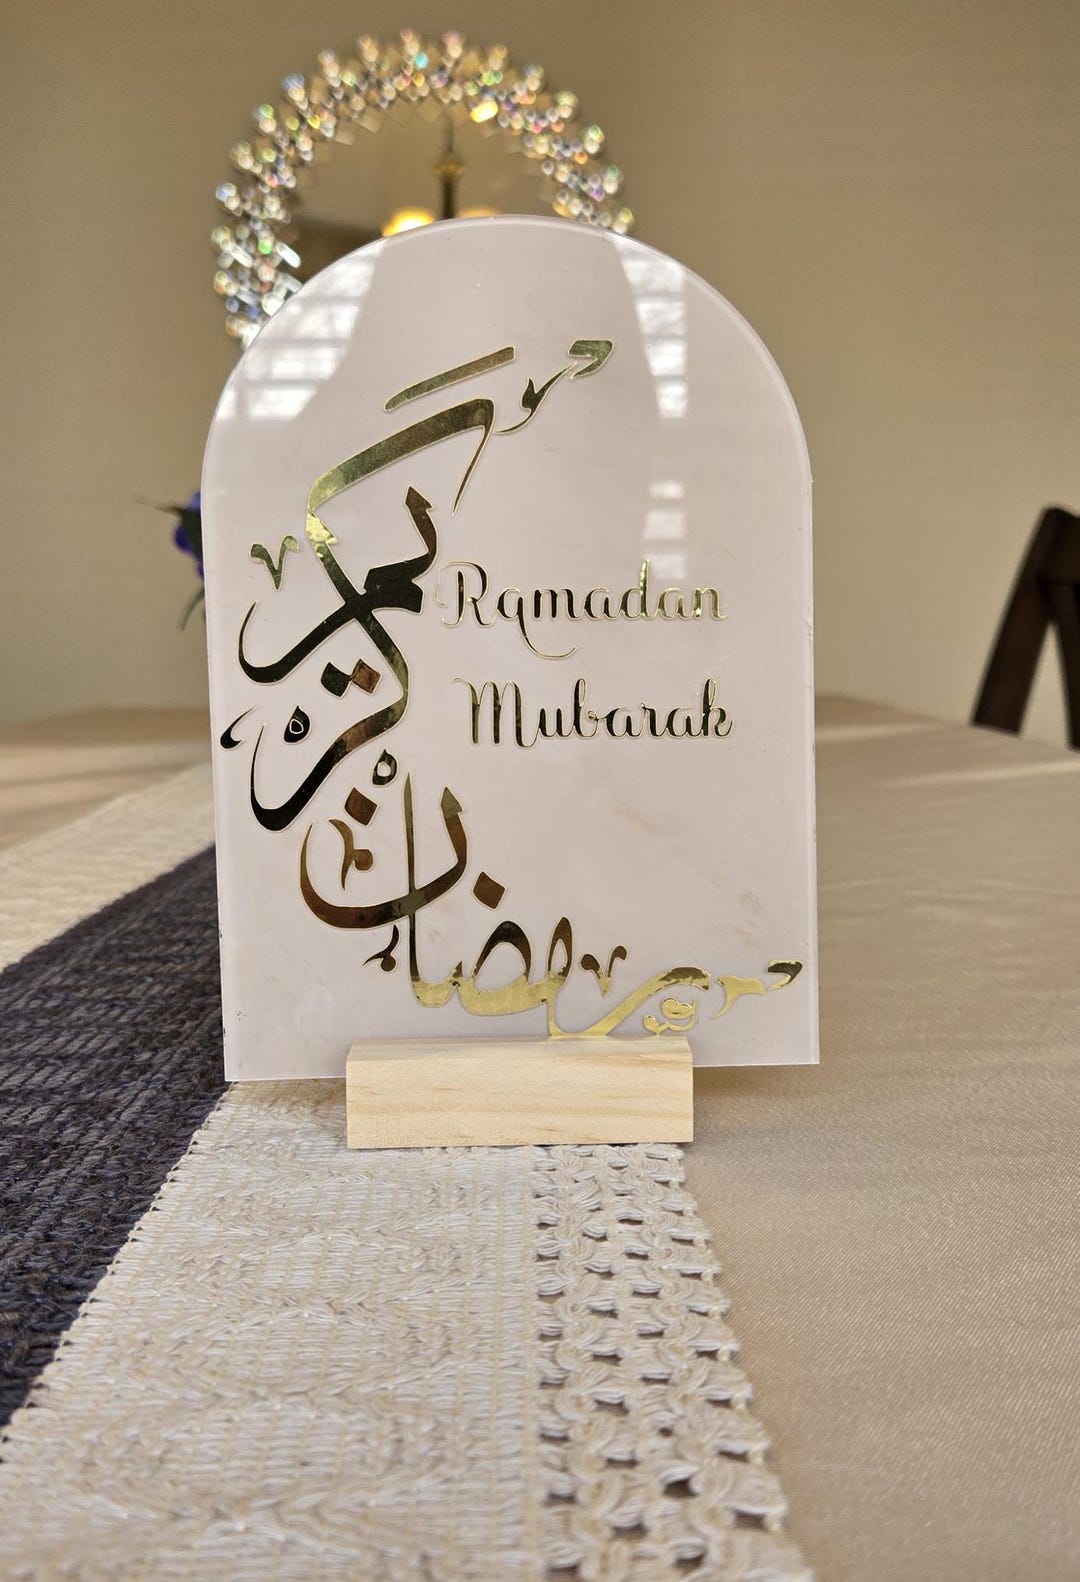 رمضان كريم
Ramadan
Mubarak